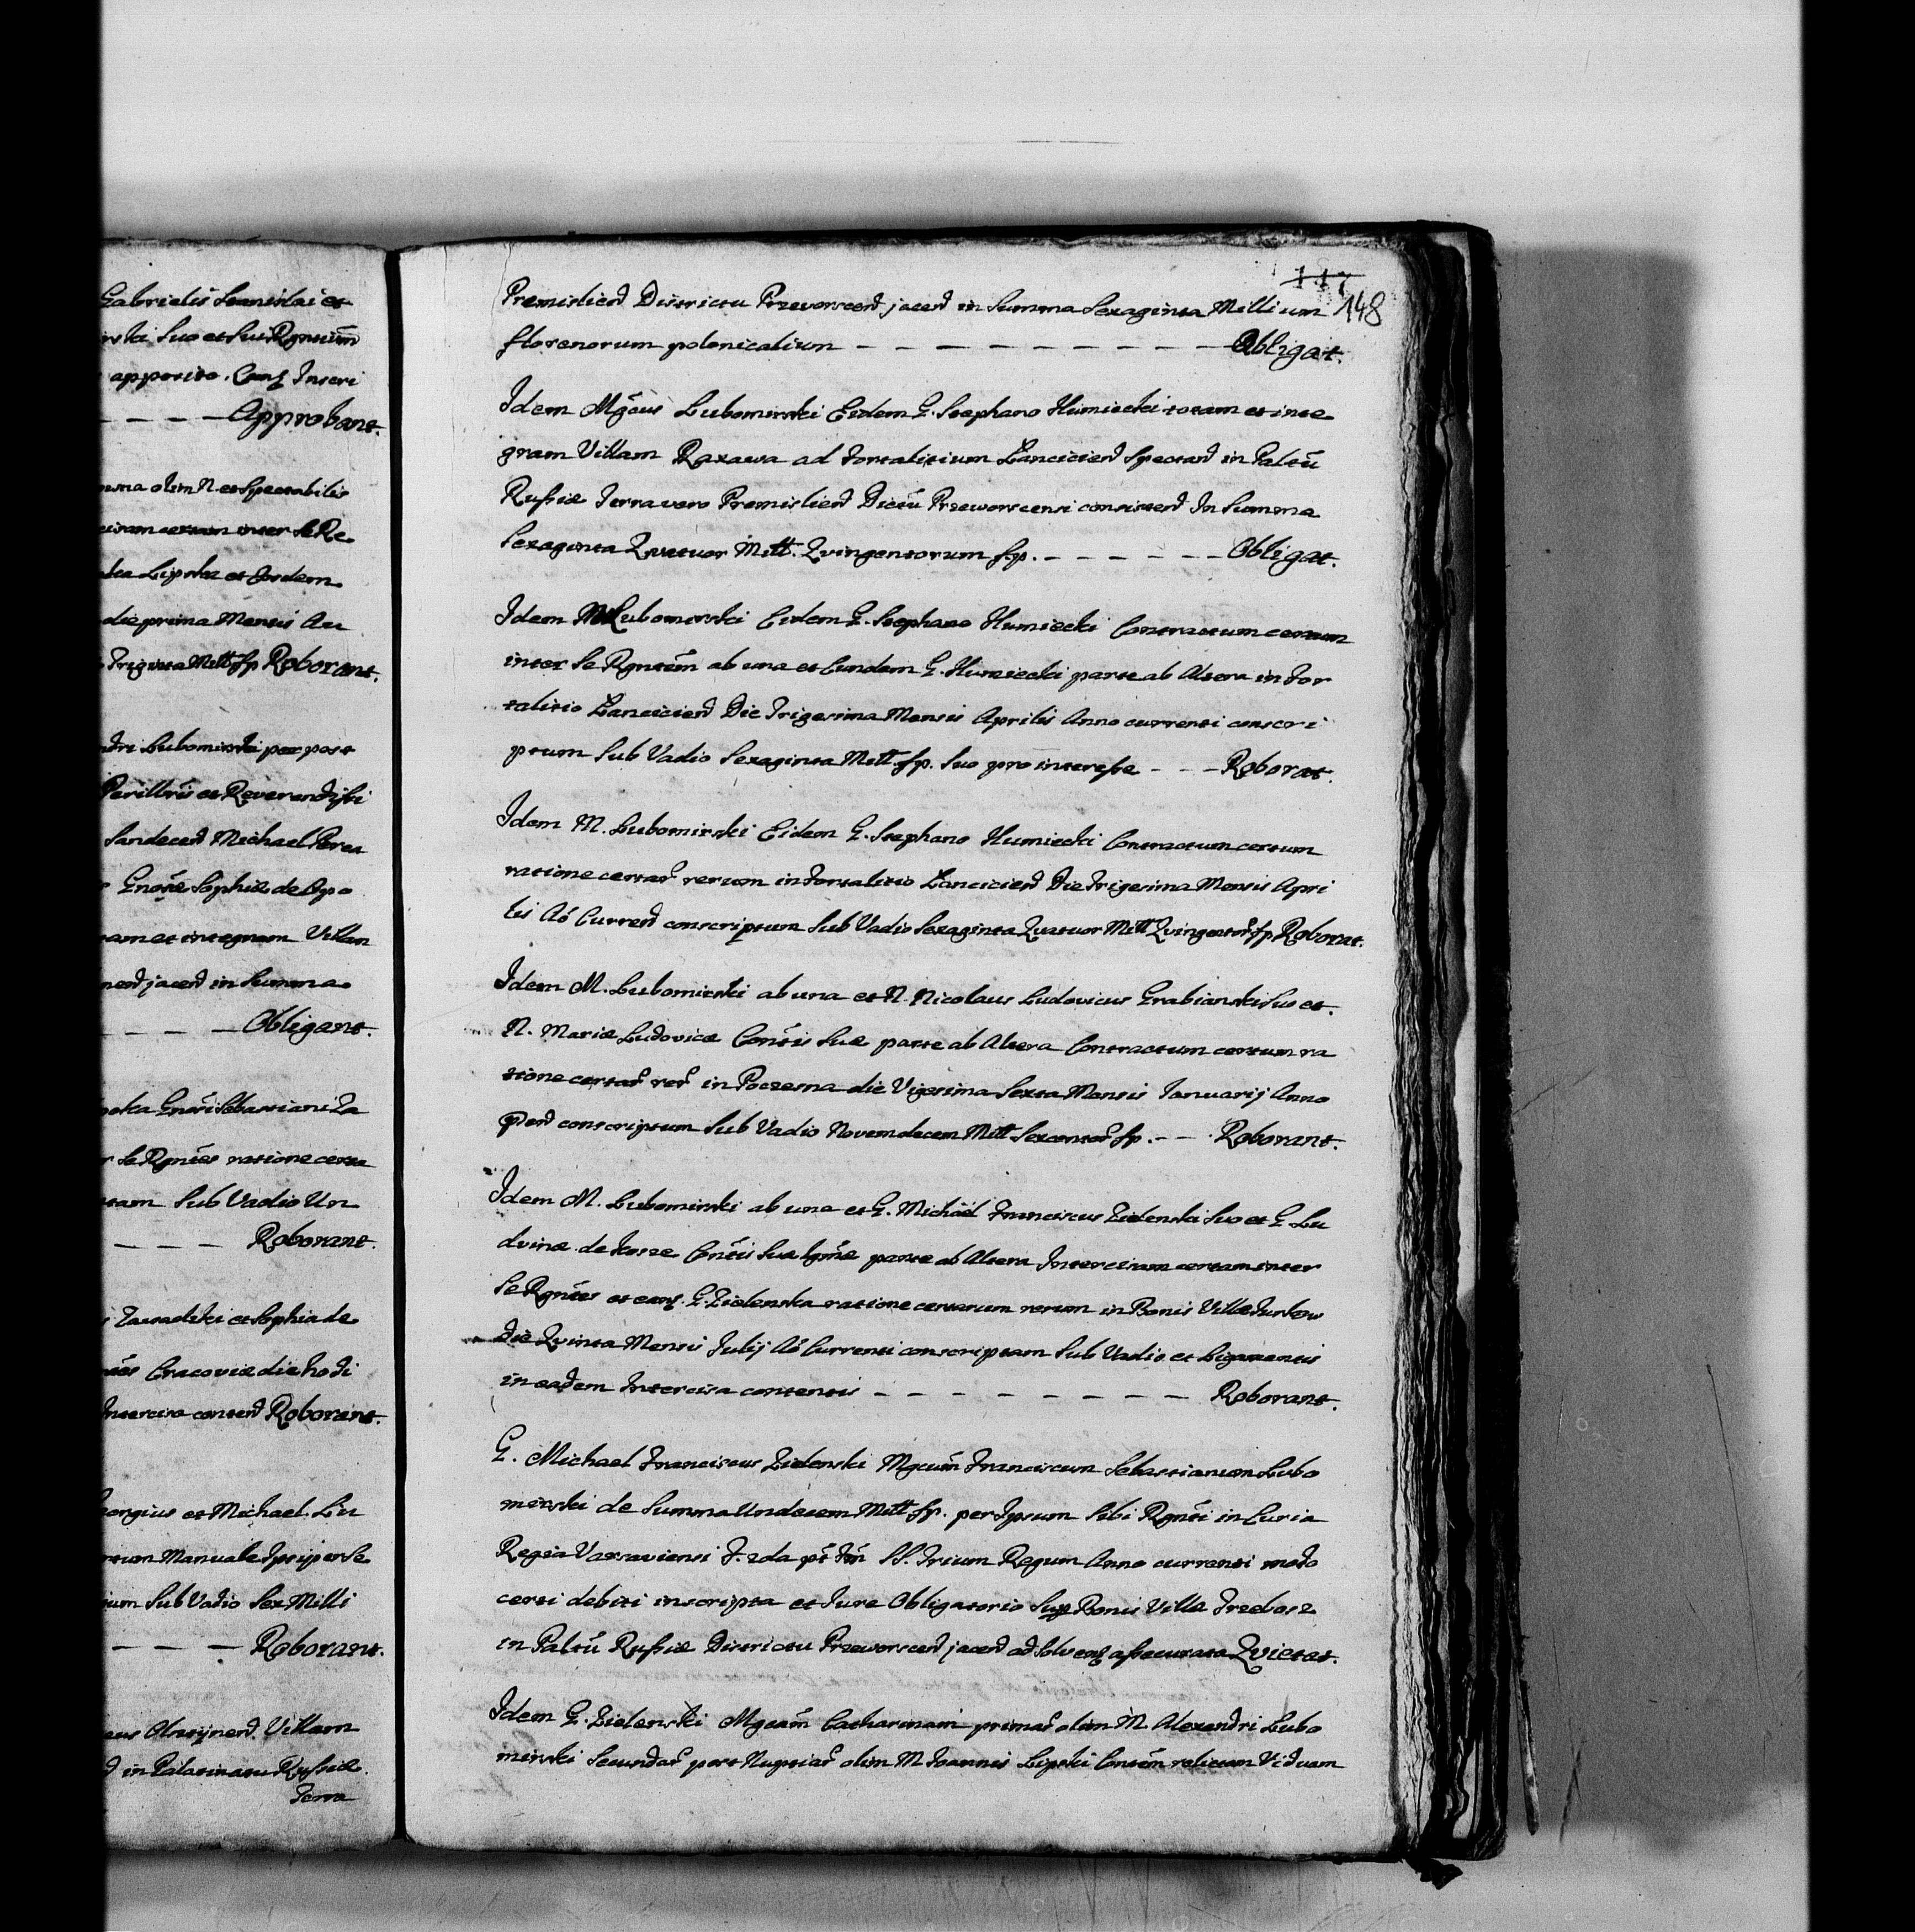 Gabrielis Stanislai et
suo et sui Rgntium
apposito. Cui Inscri
– – – – Approbant.
olim N. et Spectabilis
certam inter se Re
Lipska et Eosdem
die prima Mensis Au
Triginta Mill fp Roborant.
Lubomirski per post
Perillris et Reverendissi
Sandecen Michael
Gnosae Sophiae de Opo
et integram Villam
jacen in Summa
– – – Obligant.
Gnosi Sebastiani Za
se Rgntes ratione certa
Sub Vadio Un
– – – – Roborant.
Zawadzki et Sophia de
Cracoviae die hodi
Intercisa conten Roborant.
eorgius et Michael Lu
Manuale Ipsi per se
Sub Vadio Sex Milli
– – – – Roborant.
Villam
in Palatinatu Russiae
Terra
117
148
Premislien Districtu Przevorscen jacen in Summa Sexaginta Millium
florenorum polonicalium – – – – – – – – – – Obligat.
Idem Mgcus Lubomirski Eidem G. Stephano Humiecki totam et inte
gram Villam Raxawa ad Fortalitium Lancicien Spectan in Paltu
Russiae Terra vero Premislien Dictu Przeworscensi consisten In Summa
Sexaginta Quatuor Mill. Quingentorum fp. – – – – – – Obligat.
Idem M Lubomirski Eidem G. Stephano Humiecki Contractum certum
inter Se Rgntem ab una et Eundem G. Humiecki parte ab Altera in For
talitio Lancicien Die Trigesima Mensis Aprilis Anno currenti conscri
ptum Sub Vadio Sexaginta Mill fp. Suo pro interesse – – – Roborat.
Idem M. Lubomirski Eidem G. Stephano Humiecki Contractum certum
ratione certar rerum in Fortalitio Lancicien Die Trigesima Mensis Apri
lis Ao Curren conscriptum Sub Vadio Sexaginta Quatuor Mill Quingentor fp Roborat.
Idem M. Lubomirski ab una et N. Nicolaus Ludovicus Grabianski suo et
N. Mariae Ludovicae Contis Suae parte ab Altera Contractum certum ra
tione certar rer in Poczesna die Vigesima Sexta Mensis Ianuarij Anno
Pnd conscriptum Sub Vadio Novemdecem Mill Sexcentor fp. – – Roborant.
Idem M. Lubomirski ab una et G. Michael Franciscus Zielenski Suo et G Lu
dvinae de Contis Suae parte ab Altera Intercisam certam inter
Se Rgntes et G. Zielenska ratione certarum rerum in Bonis Villae Iunkow
die Quinta Mensis Julij Ao Currenti conscriptam Sub Vadio et Ligamentis
in eadem Intercisa contentis – – – – – – – – – Roborant.
G. Michael Franciscus Zielenski Mgcum Franciscum Sebastianum Lubo
mirski de Summa Undecem Mill fp. per Ipsum Sibi Rgnti in Curia
Regia Varsaviensi F. 2da pt Fm SS. Trium Regum Anno currenti modo
certi debiti inscripta et Jure Obligatorio Sup Bonis Villae Trebosz
in Paltu Russiae Districtu Przeworscen jacen ad Solven assecurata Quietat.
Idem G. Zielenski Mgcam Catharinam primar olim M. Alexandri Lubo
mirski Secundar post Nuptiar olim M Joannis Lipski Contem relictam Viduam